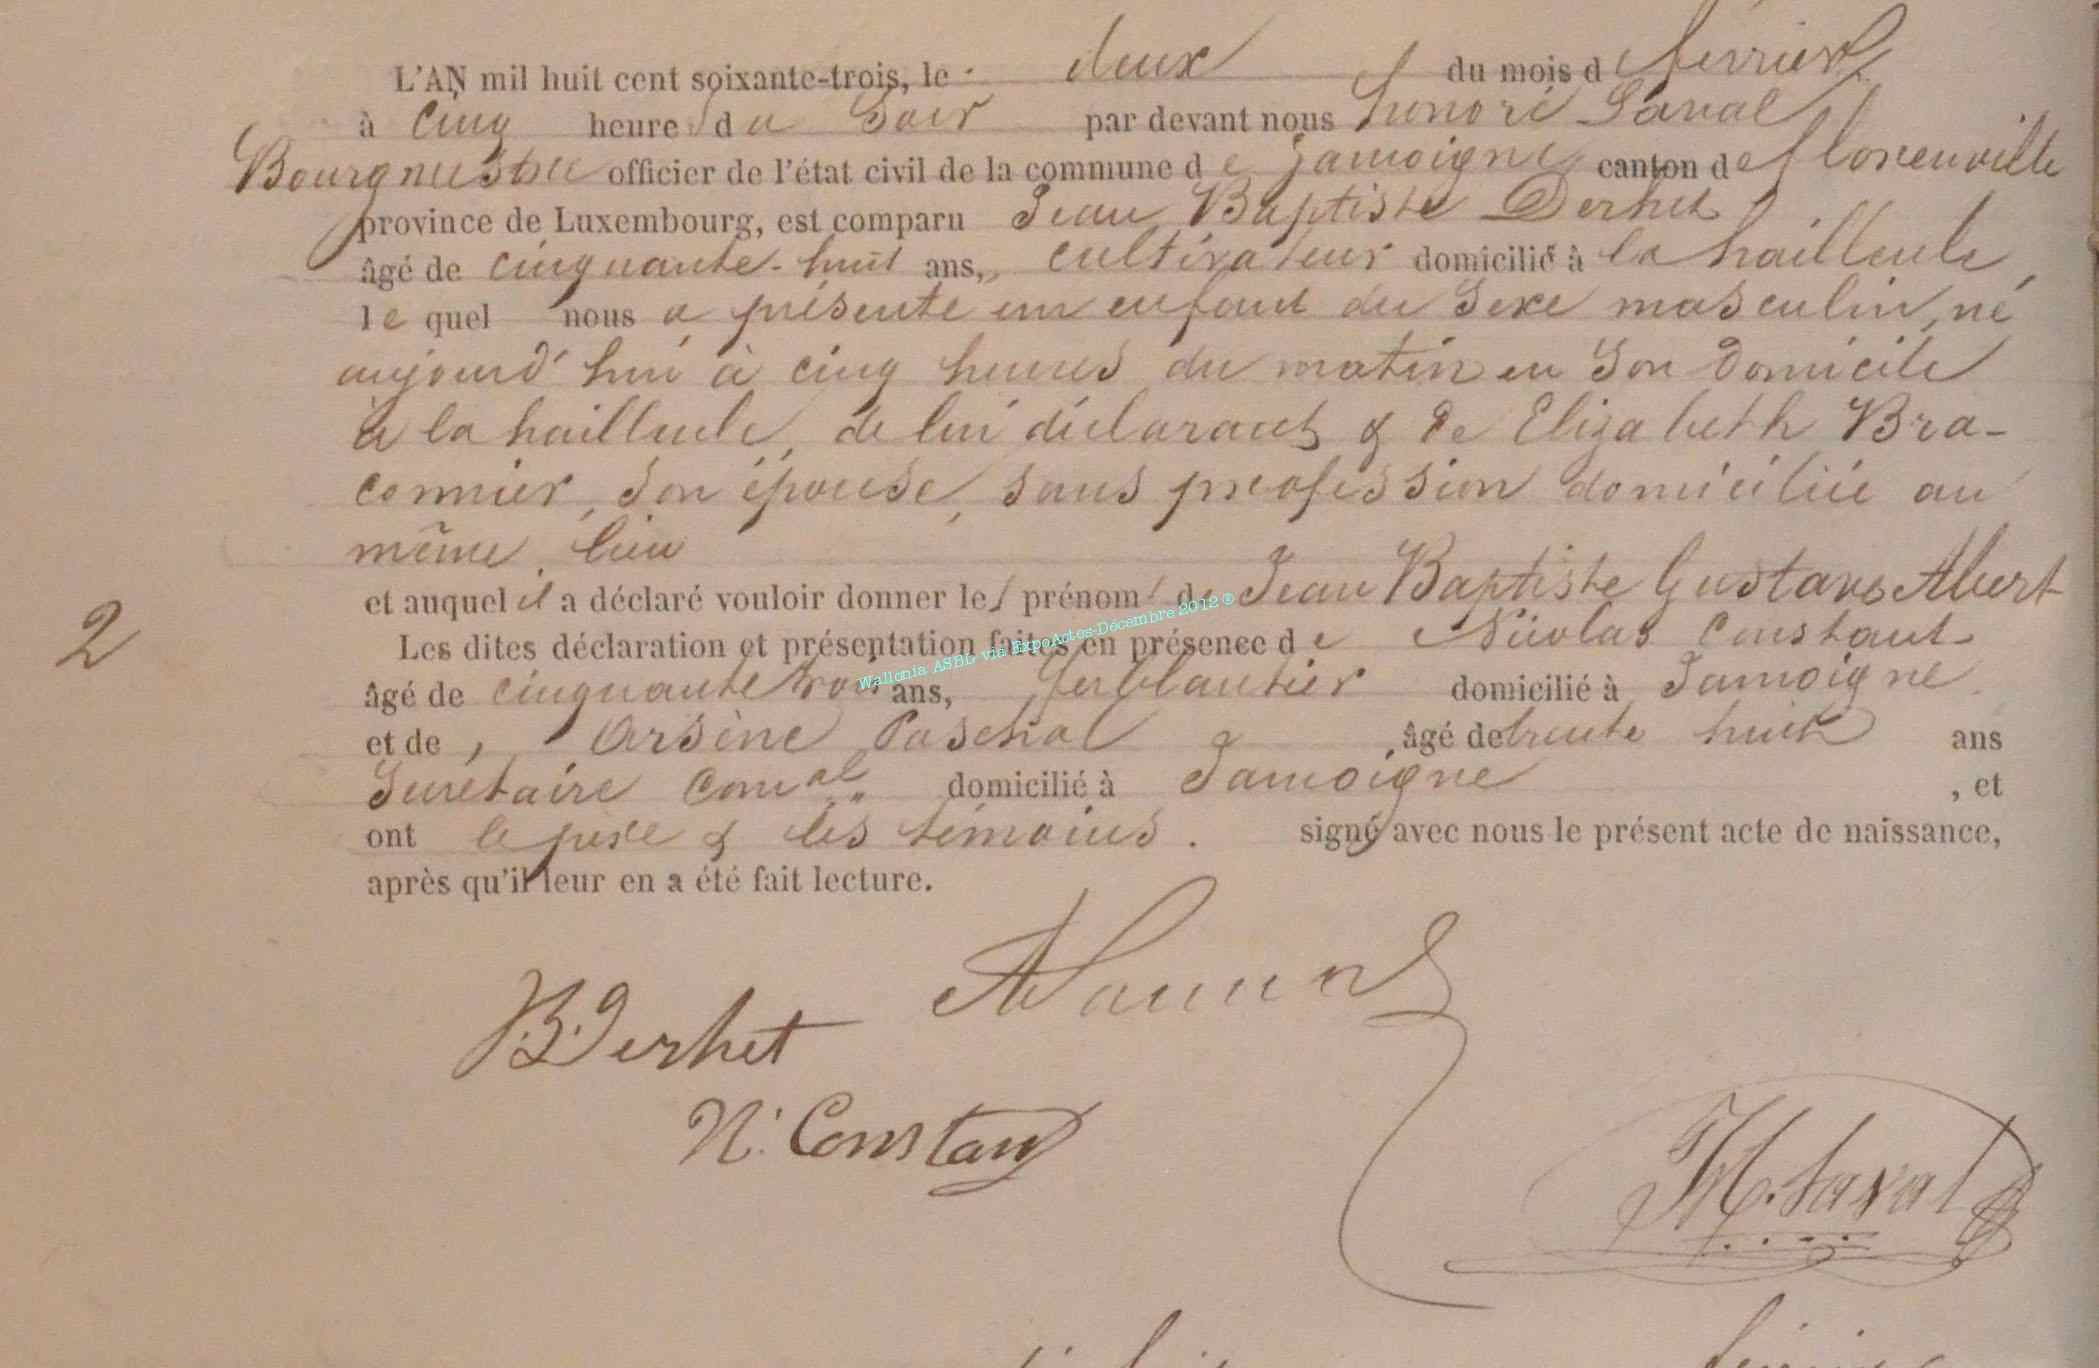 L'AN mil huit cent soixante-trois, le deux du mois de février
à cinq heures du soir par devant nous honoré Laval
Bourgmestre officier de l'état civil de la commune de jamoigne canton de florenville
province de Luxembourg, est comparu Jean Baptiste Derhet
âgé de cinquante-huit ans, cultivateur domicilié à la hailleule,
le quel nous a présenté un enfant du sexe masculin, né
aujourd'hui à cinq heures du matin en son domicile
à la hailleule, de lui déclarant & de Elizabeth Bra-
connier, son épouse, sans profession domiciliée au
même lieu
et auquel il a déclaré vouloir donner les prénoms de Jean Baptiste Gustave Albert
2
Les dites déclaration et présentation faites en présence de Nicolas Constant
Wallonia ASBL via ExpoActes-Décembre 2012 ®
âgé de cinquante trois ans, ferblantier domicilié à Jamoigne
et de, Arsène Paschal, âgé de trente huit ans
Secrétaire Comal domicilié à Jamoigne, et
ont le père & les témoins. signé avec nous le présent acte de naissance,
après qu'il leur en a été fait lecture.
B. Derhet
N. Constant
H. Laval